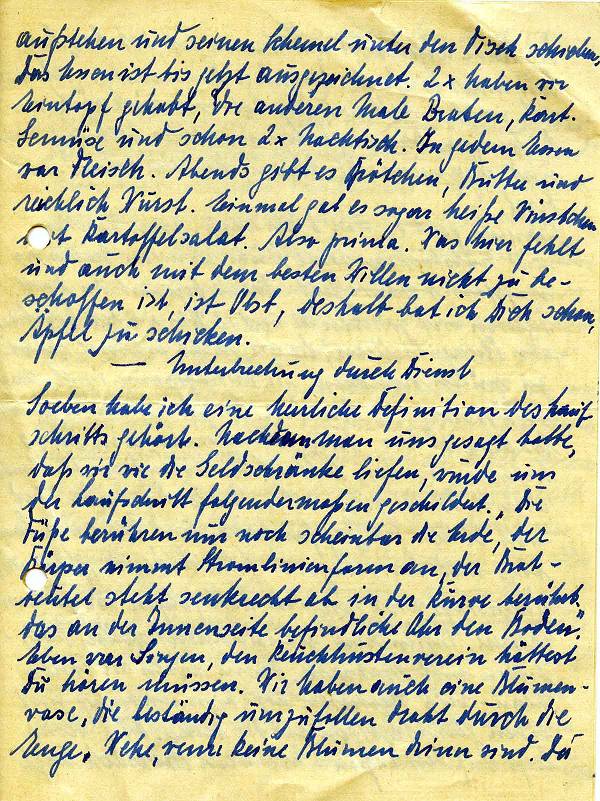 aufstehen und seinen Schemel unter den Tisch schieben,
Das Essen ist bis jetzt ausgezeichnet. 2 x haben wir
Eintopf gehabt, die anderen Male Braten, Kart.
Gemüse und schon 2 x Nachtisch. In jedem Essen
war Fleisch. Abends gibt es Brötchen, Butter und
reichlich Wurst. Einmal gab es sogar heiße Würstchen
Kartoffelsalat. Also prima. Was hier fehlt
und auch mit dem besten Willen nicht zu be-
schaffen ist, ist Obst, deshalb bat ich Dich schon,
Äpfel zu schicken.
— Unterbrechung durch Dienst
Soeben habe ich eine herrliche Definition des Lauf
schritts gehört. Nachdem man uns gesagt hatte,
daß wir wie die Geldschränke liefen, wurde uns
der Laufschritt folgendermaßen geschildert. „Die
Füße berühren nur noch scheinbar die Erde, der
Körper nimmt Stromlinienform an, der Brot-
beutel steht senkrecht ab in der Kurve berührt
das an der Innenseite befindliche Ohr den Boden".
Eben war Singen, den Keuchhustenverein hättest
Du hören müssen. Wir haben auch eine Blumen-
vase, die beständig umzufallen droht durch die
Enge. Wehe, wenn keine Blumen drinn sind. Da